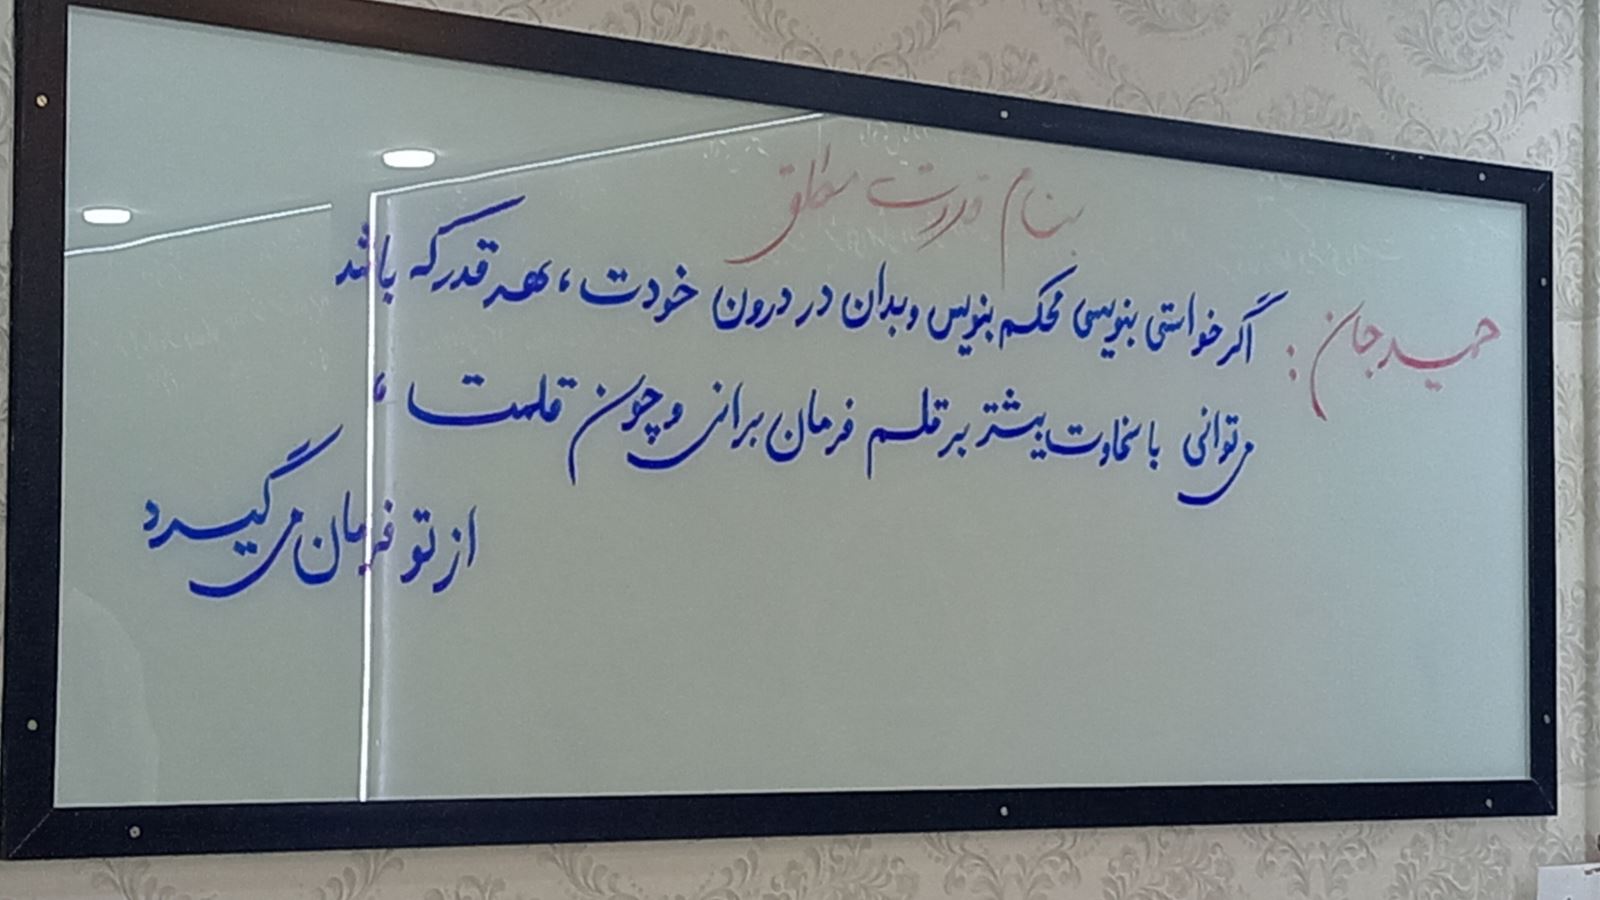 بنام قدرت مطلق
حمید جان :
اگر خواستی بنویسی محکم بنویس و بدان در درون خودت ، هر قدر که باشد
می‌توانی با سخاوت بیشتر بر قلم فرمان برانی و چون قلمت ،
از تو فرمان می‌گیرد